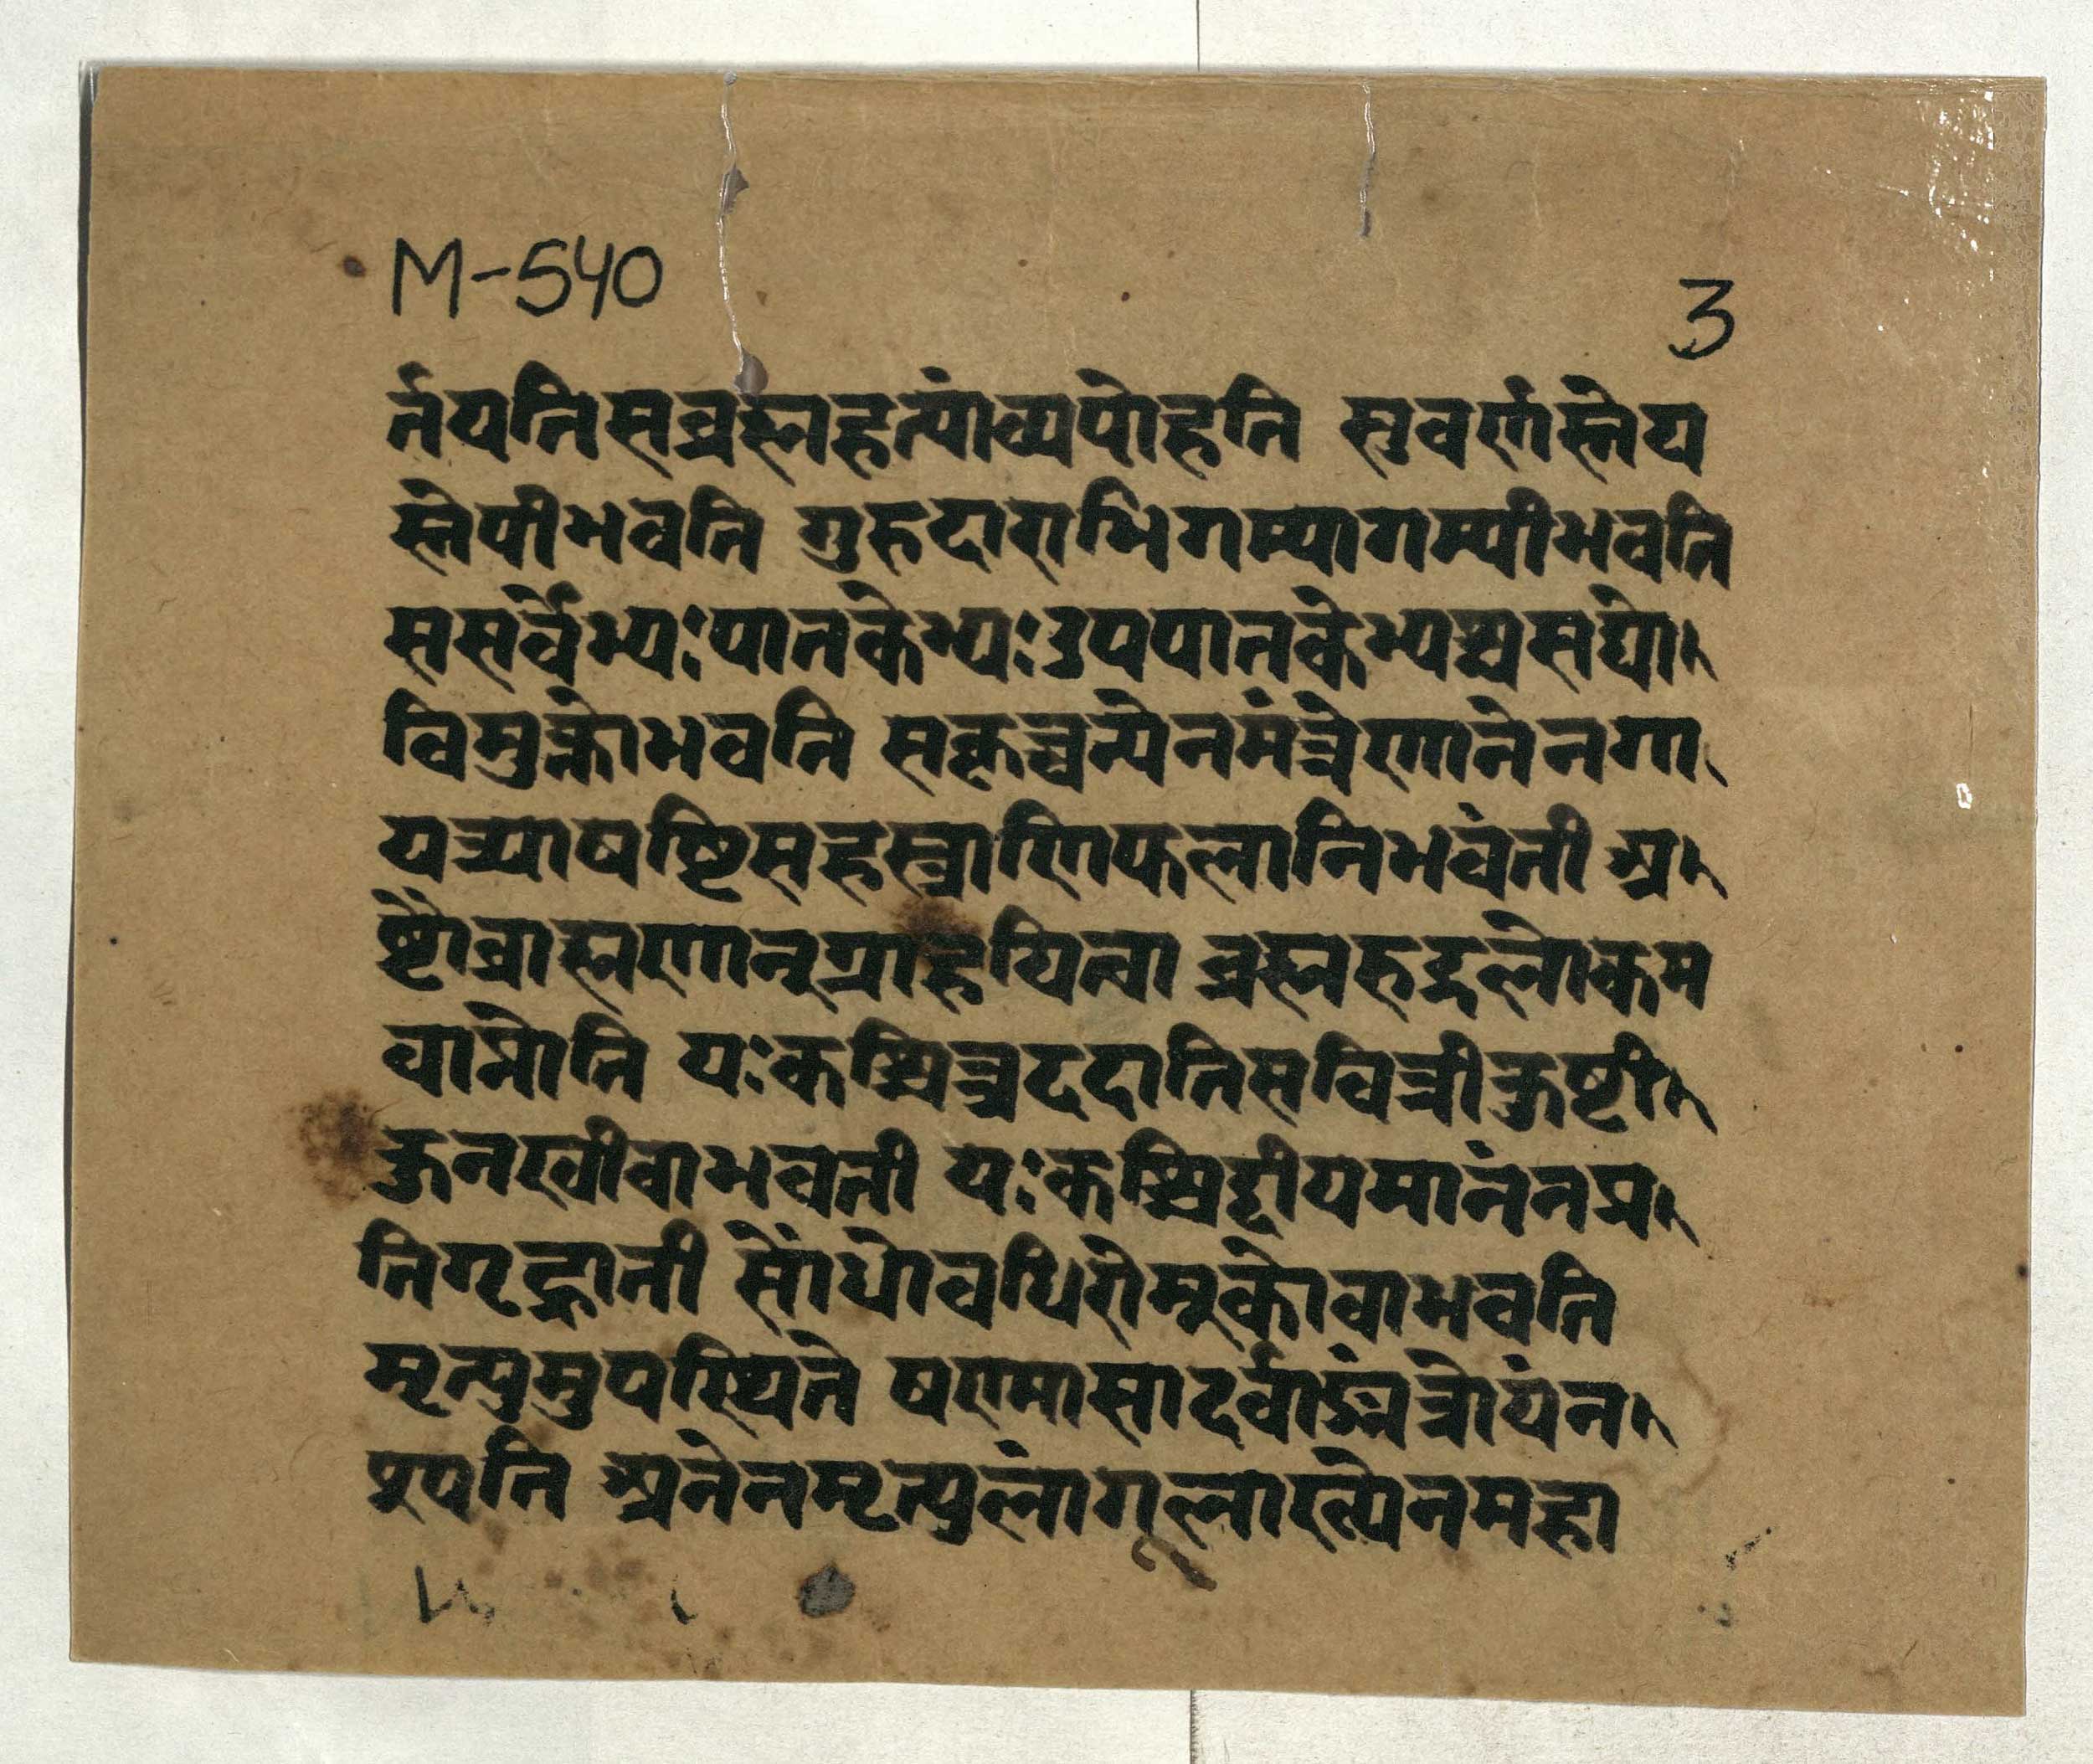 M-540
3
र्तयतिसब्रह्महत्यांव्यपोहति सुवर्णस्तेय
स्तेयीभवति गुरुदाराभिगम्यागम्यीभवति
ससर्वेभ्यःपातकेभ्यःउपपातकेभ्यश्चसद्यो
विमुक्तोभवति सकृच्चत्येनमंत्रेणानेनगा
यत्र्याषष्टिसहस्त्राणिफलानिभवंती अ
ष्टौब्राह्मणान्ग्राहयित्वा ब्रह्मरुद्रलोकम
वाप्नोति यःकश्चिन्नददातिसवित्रीकुष्टी
कुनखीवाभवती यःकश्चिद्दीयमानंनप्र
तिगृह्णाती सोंधोवधिरोमूकोवाभवति
मृत्युमुपस्थिते षण्मासादर्वाङ्मंत्रोयंन
श्यति अनेनमृत्युलांगूलाख्येनमहा